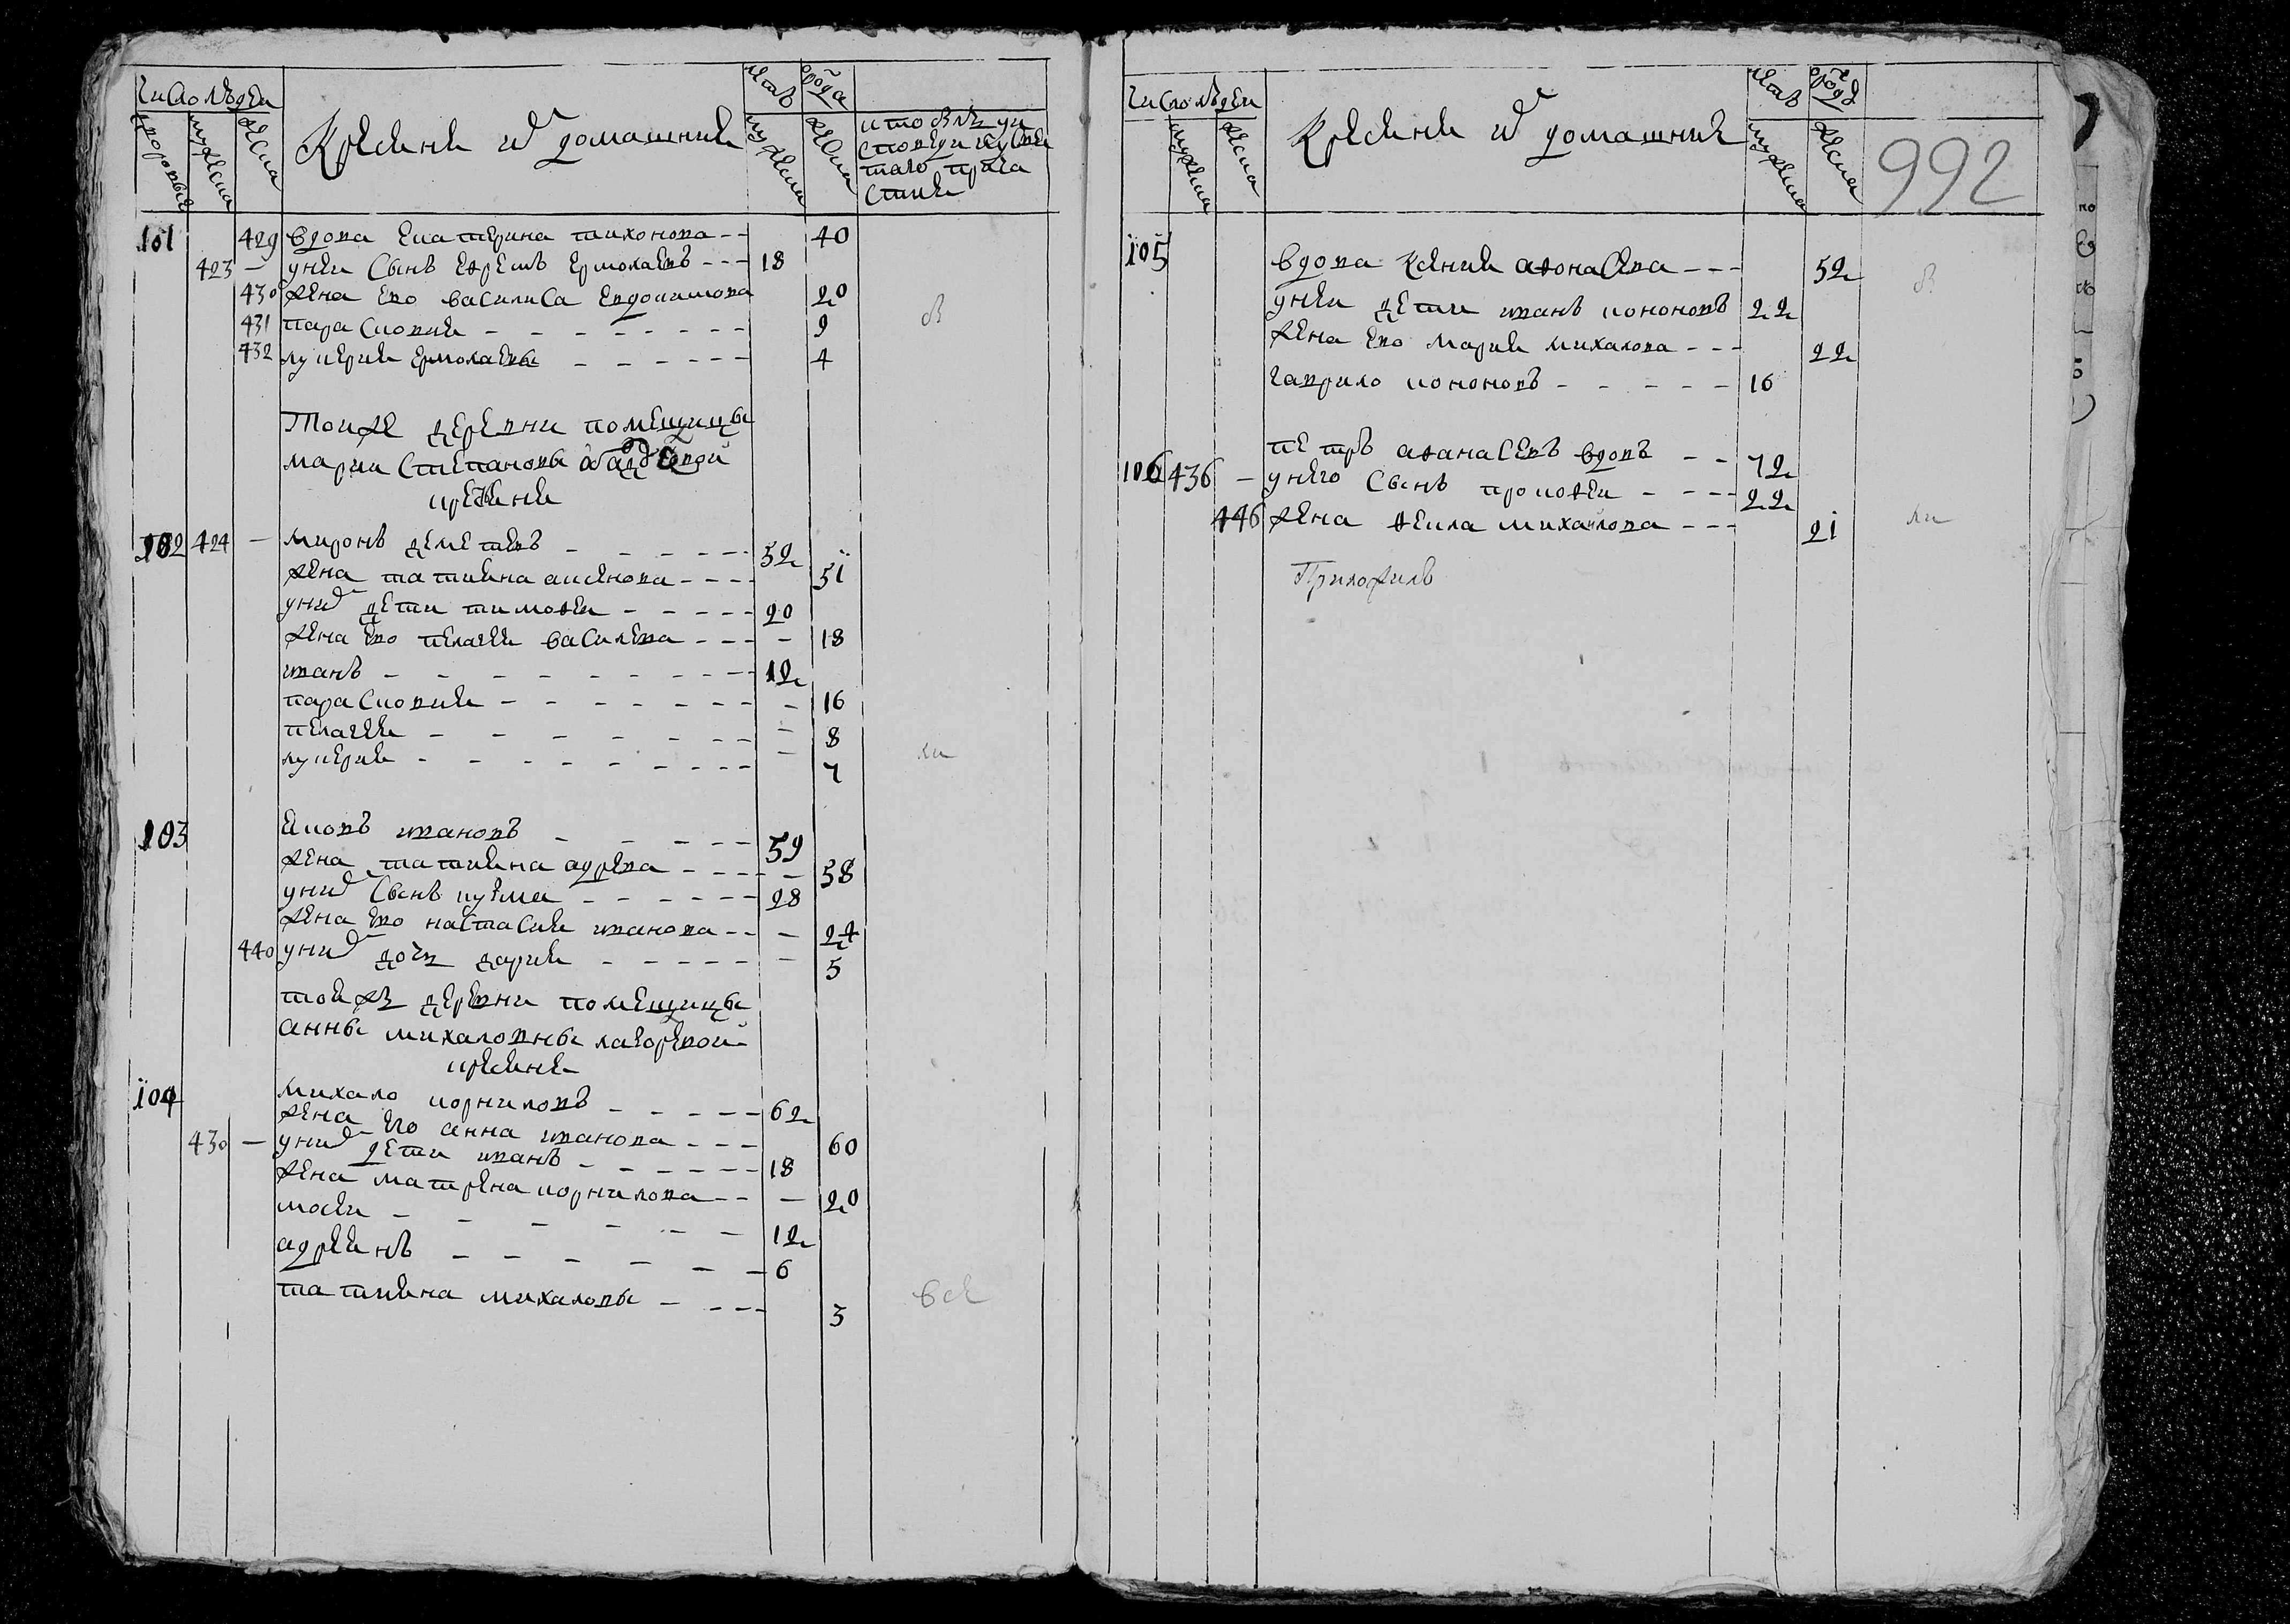 число людеи
дворовые
мужеска
женска
Крестьяне их домашние
лета
от рода
мужеска
женска
кто был у и
споведи и у свя
таго прича
стия
101 429 вдова екатерина тихонова -- 40
423 — у неи сынъ ефремъ ермолаевъ --- 18
430 жена ево василиса евдокимова 20
431 парасковия - - - - - - - 9
432 лукерия ермолаевы - - - - - - 4
Тоиже деревни помещицы
марии степановы
крестьяне
102 424 — миронъ деметевъ - - - - - - 52
жена татияна аксенова - - - - 51
у них дети тимофеи - - - - - 20
жена ево пелагея василева - - - — 18
иванъ - - - - - - - - - 12
парасковия - - - - - - - - 16
пелагея - - - - - - - - 8
лукерия - - - - - - - - - 7
103 яковъ ивановъ - - - - - - 59
жена татияна адрева - - - - - 58
у них сынъ кузма - - - - - - 28
жена ево настасия иванова -- — 24
440 у них дочь дария - - - - - - 5
тоижъ деревни помещицы
анны михаловны
крестьяне
104 михало корниловъ - - - - - 62
жена его анна иванова - - - 60
430 — у них дети иванъ - - - - - - 18
жена матрена корнилова -- — 20
мосеи - - - - - - 12
адреянъ - - - - - - 6
татияна михаловы - - - - 3
все
число людеи
мужеска
женска
Крестьяне их домашние
лета
от роду
мужеска
женска
992
105 вдова ксения афонасева --- 52
у неи дети иванъ кононовъ 22
жена ево мария михалова --- 22
гаврило кононовъ - - - - - 16
петръ афанасевъ вдовъ - - 72
106 436 — у него сынъ прокофеи - - - - 22
446 жена фекла михалова - - - 21
Приложилъ